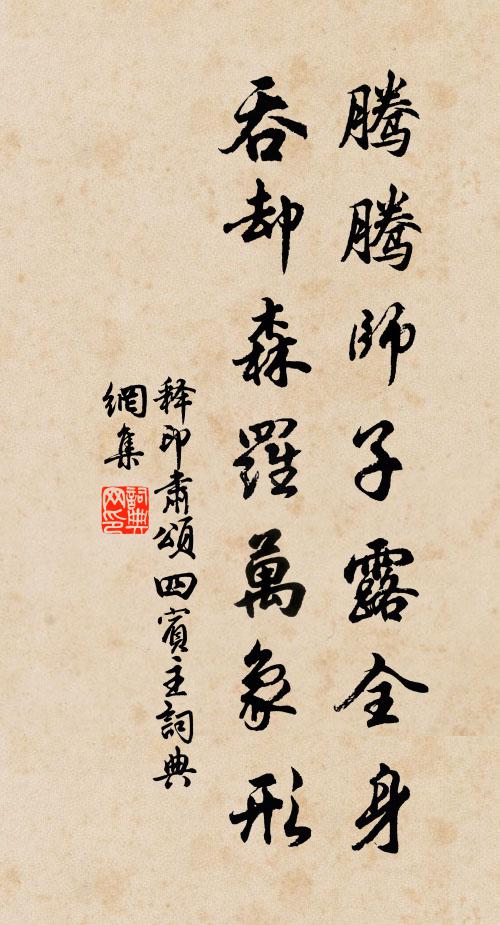 騰騰師子露全身
吞却森羅萬象形
释印肃頌四賓主詞典
網集
詞典
网印